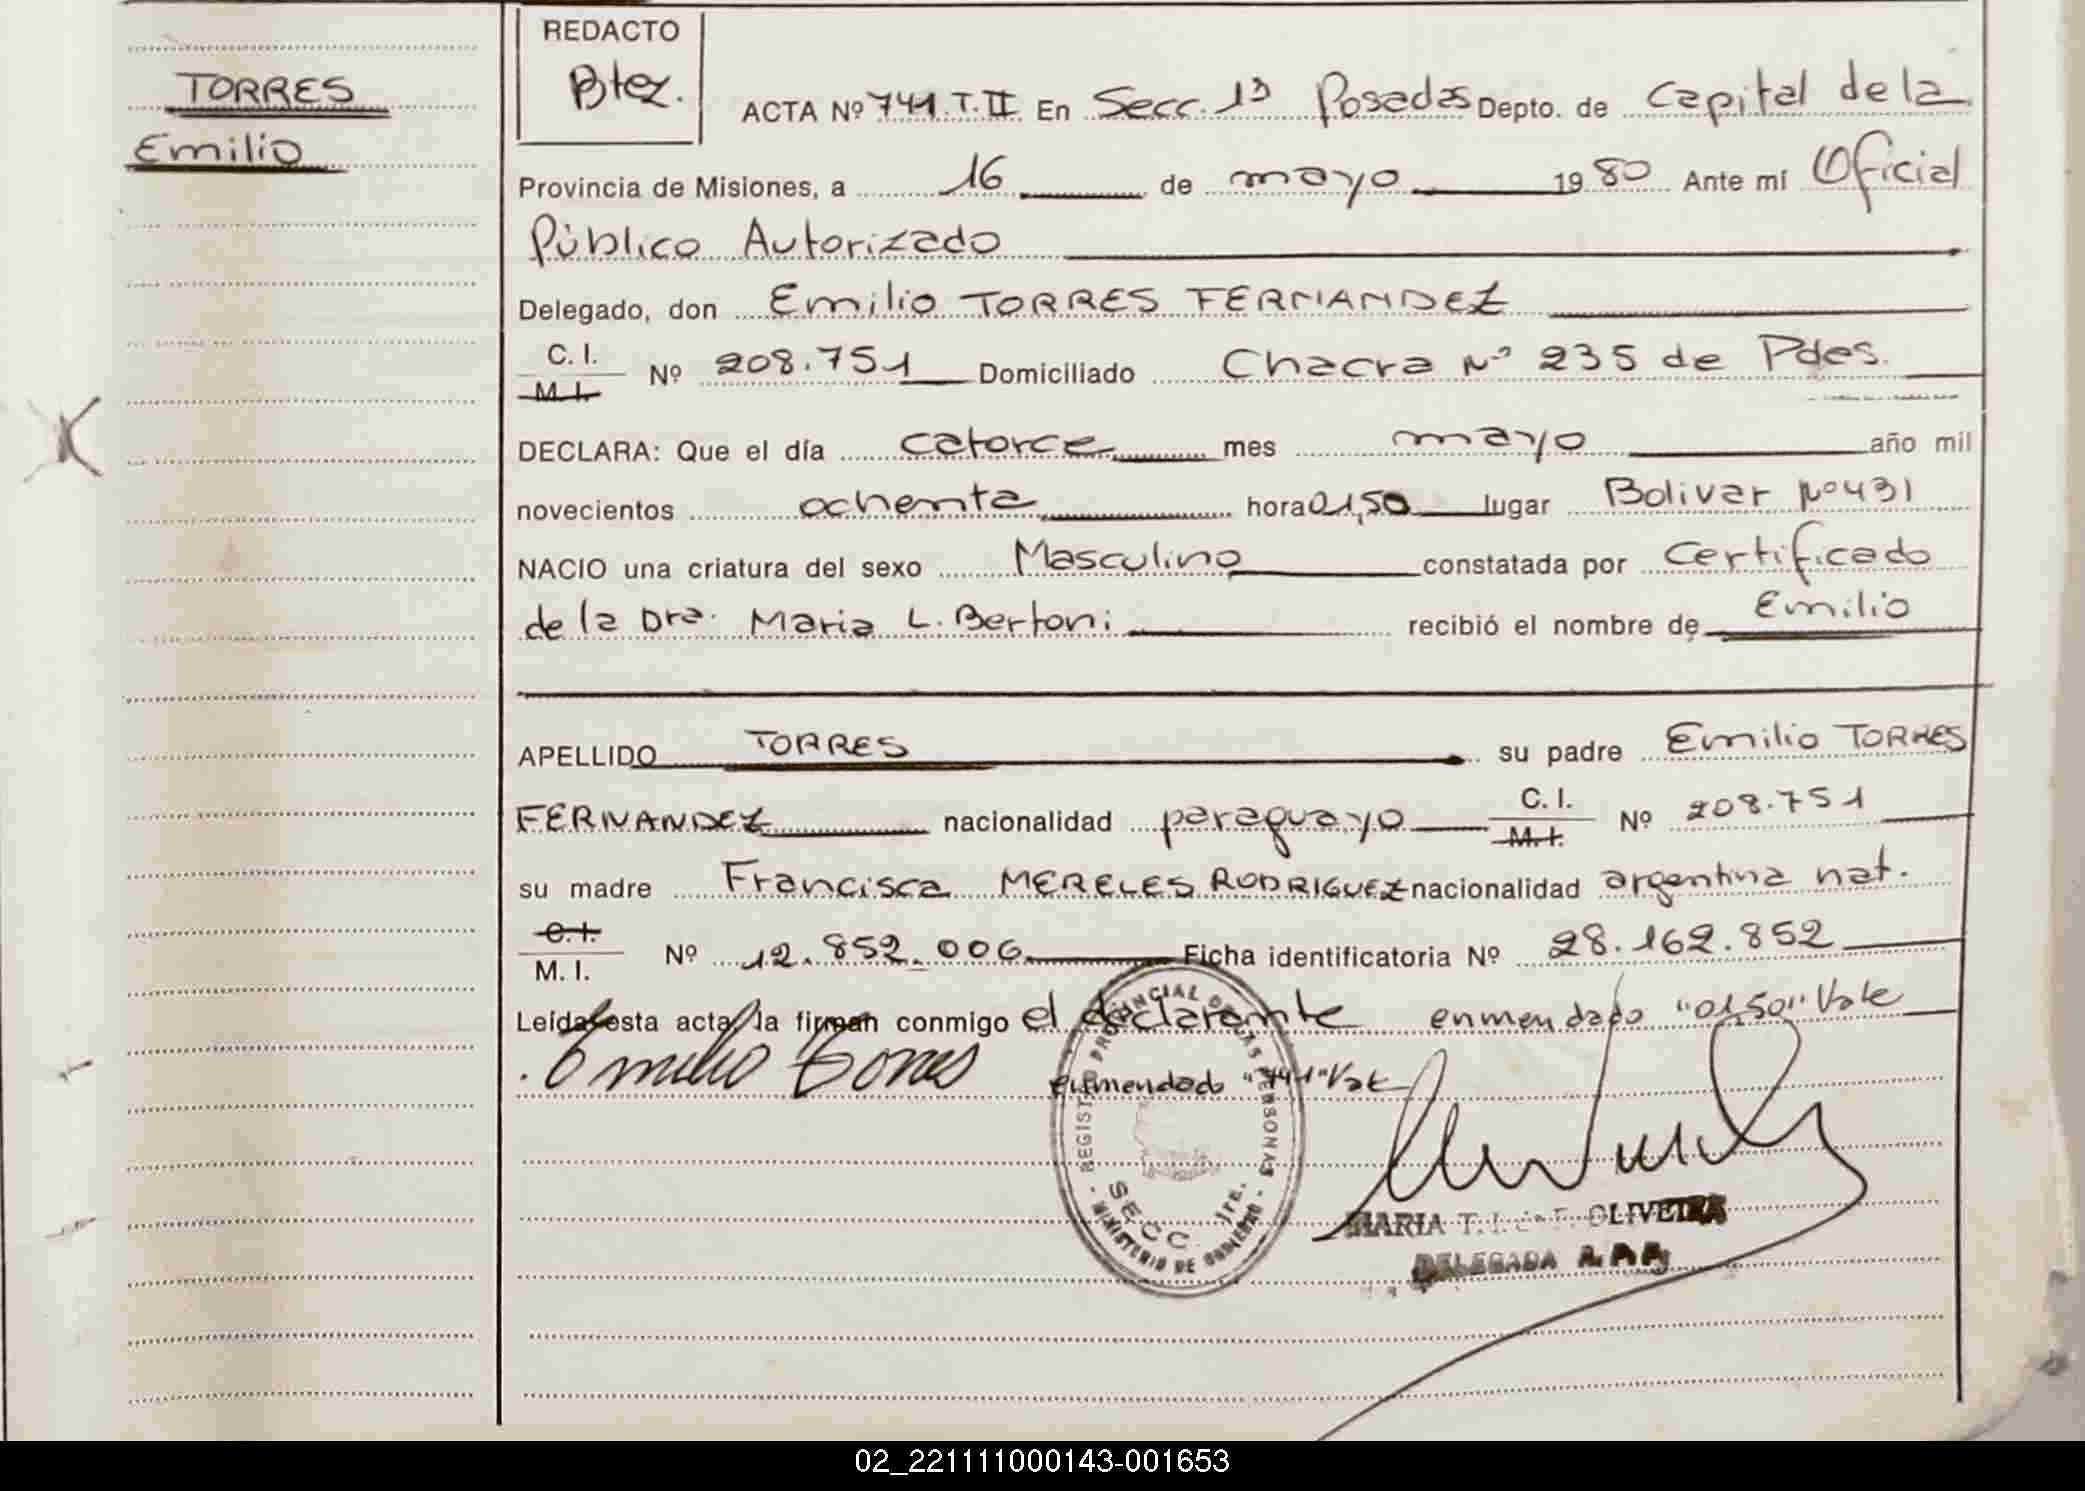 TORRES
Emilio
REDACTO
Btez.
ACTA Nº 741.T.II En Secc. 1ª Posadas Depto. de Capital de la
Provincia de Misiones, a 16 de mayo 1980 Ante mí Oficial
Público Autorizado
Delegado, don Emilio TORRES FERNANDEZ
C. I.
M. I. Nº 208.751 Domiciliado Chacra Nº 235 de Pdas.
DECLARA: Que el día catorce mes mayo año mil
novecientos ochenta hora 01,50 lugar Bolivar Nº 431
NACIO una criatura del sexo Masculino constatada por Certificado
de la Dra. Maria L. Bertoni recibió el nombre de Emilio
APELLIDO TORRES su padre Emilio TORRES
FERNANDEZ nacionalidad paraguayo C. I. M. I. Nº 208.751
su madre Francisca MERELES RODRIGUEZ nacionalidad argentina nat.
C. I.
M. I. Nº 12.852.006 Ficha identificatoria Nº 28.162.852
Leída esta acta, la firman conmigo el declarante enmendado "01,50" Vale
Emilio Torres enmendado "741" Vale
REGISTRO PROVINCIAL DE LAS PERSONAS
SECC. 1RA.
MINISTERIO DE GOBIERNO
MARIA T. OLIVEIRA
DELEGADA
02_221111000143-001653